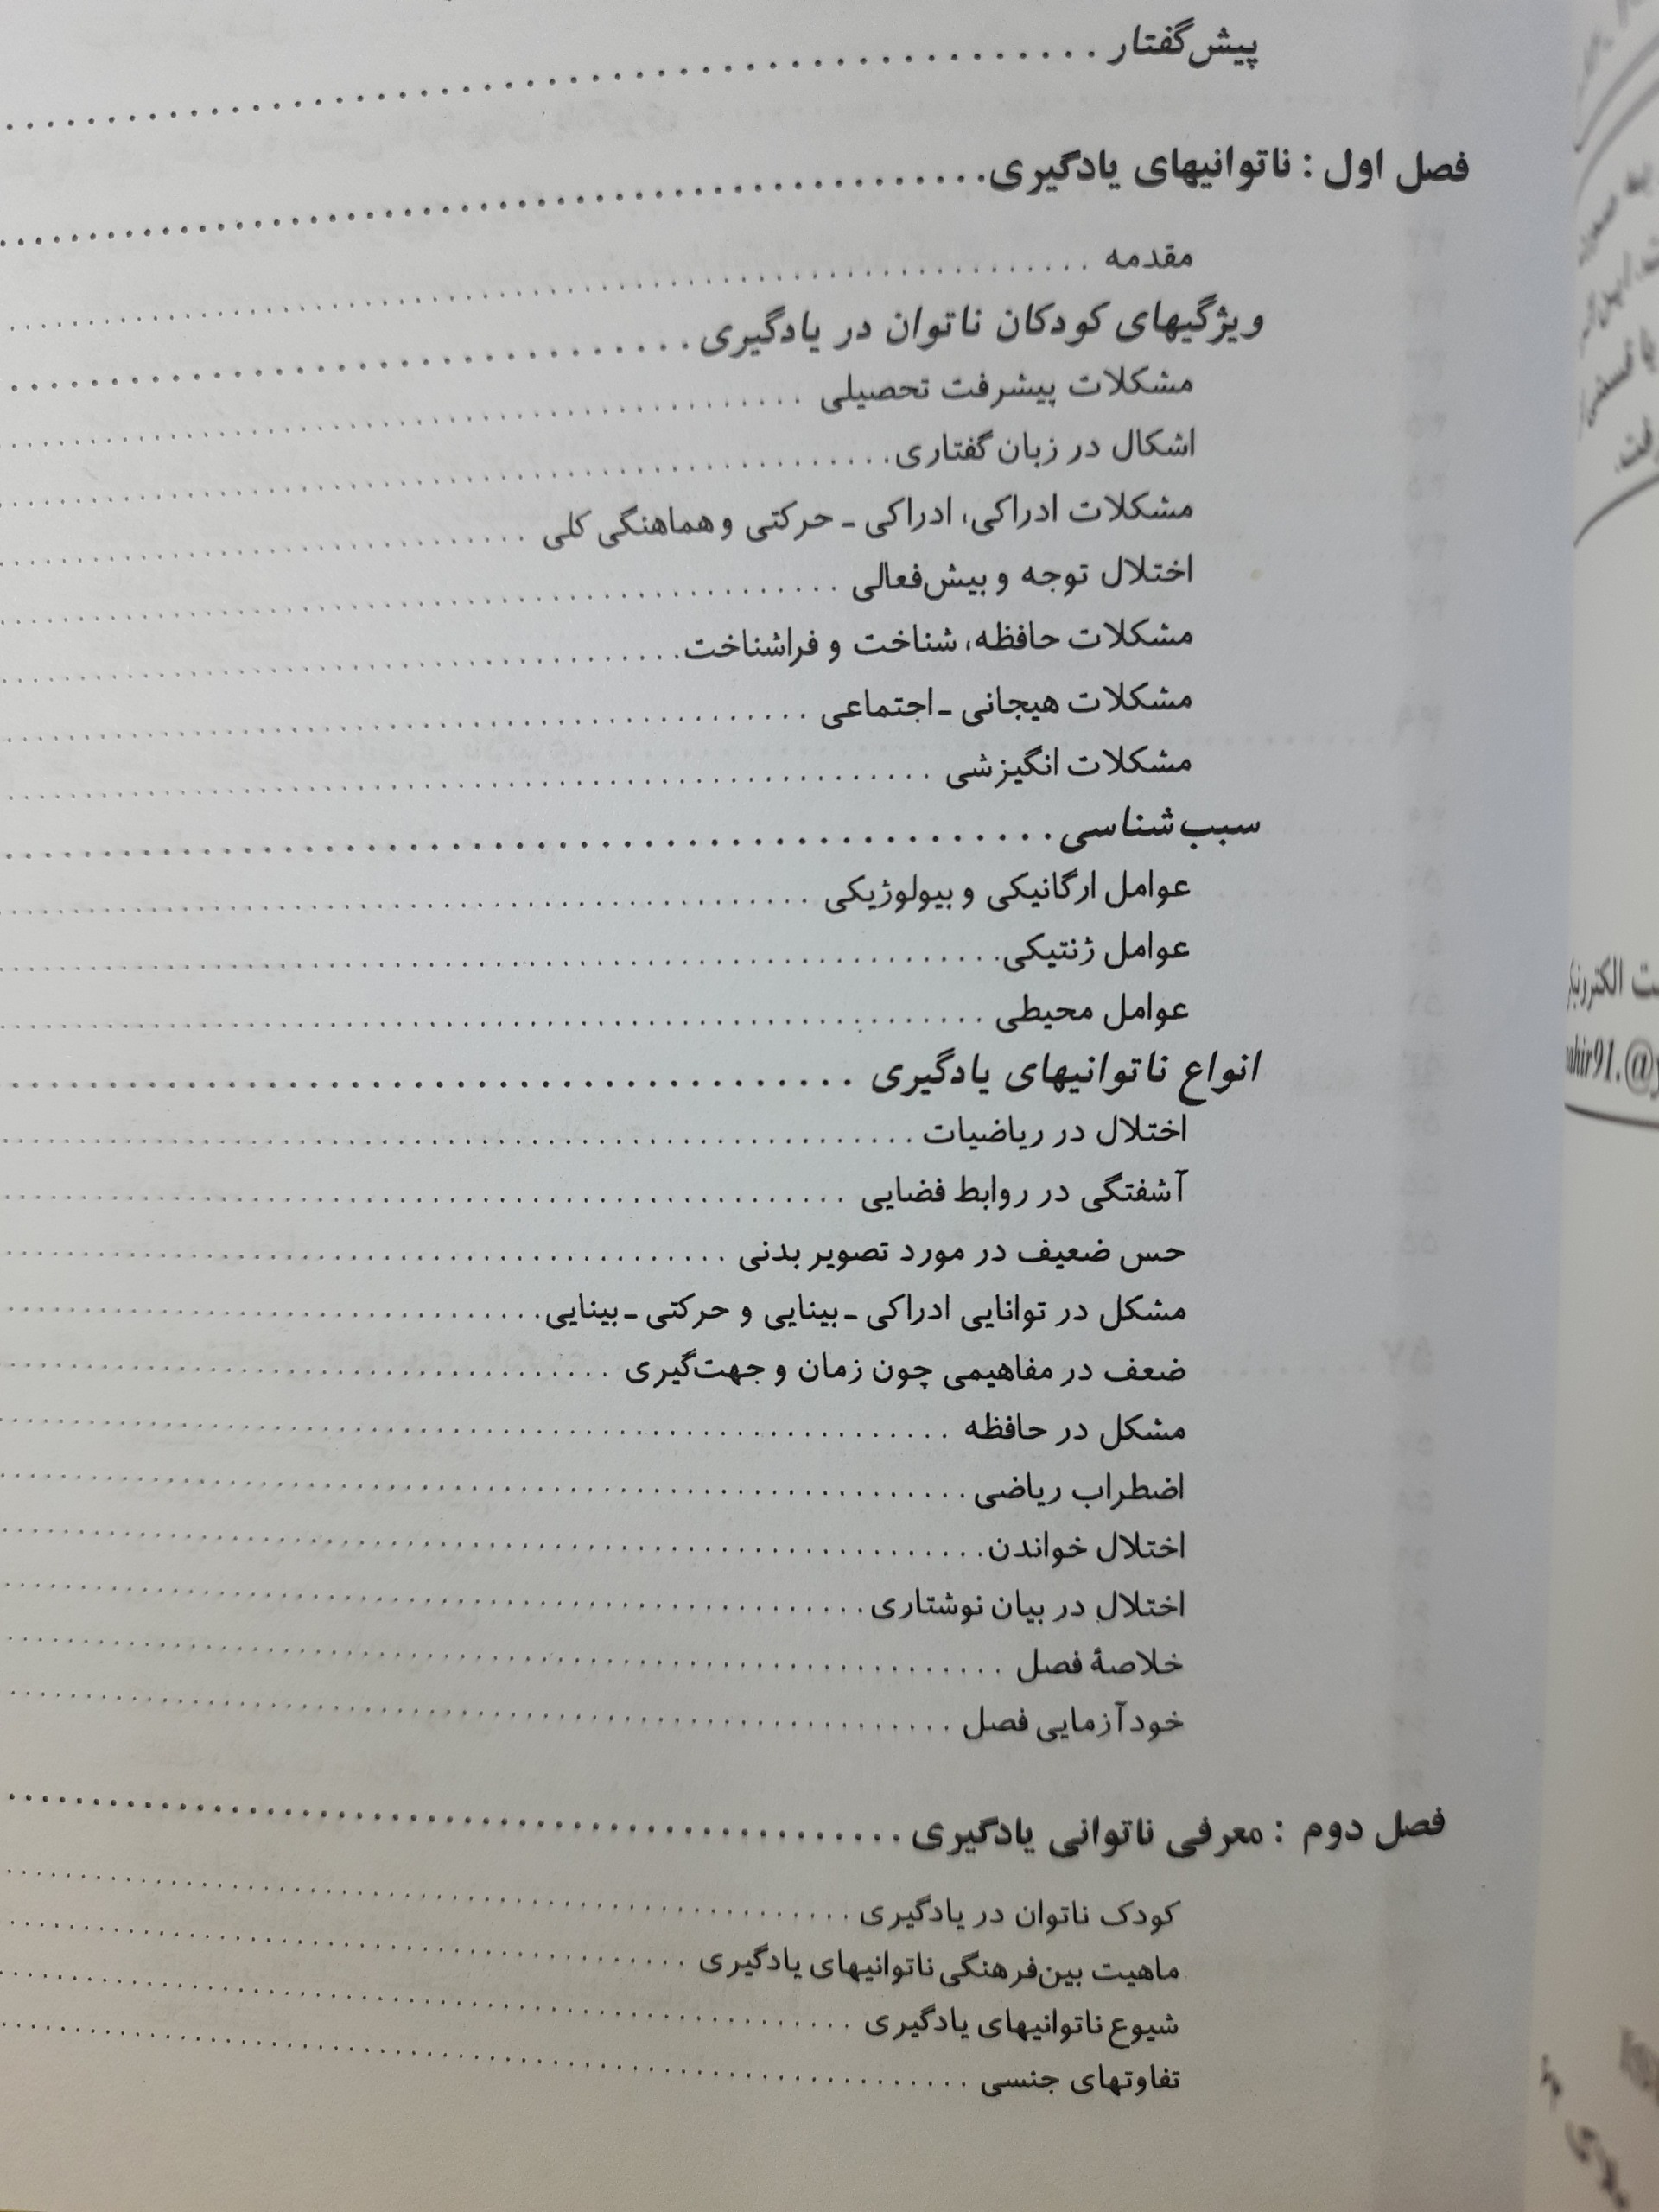 پیش‌گفتار
فصل اول : ناتوانیهای یادگیری
مقدمه
ویژگیهای کودکان ناتوان در یادگیری
مشکلات پیشرفت تحصیلی
اشکال در زبان گفتاری
مشکلات ادراکی، ادراکی ـ حرکتی و هماهنگی کلی
اختلال توجه و بیش‌فعالی
مشکلات حافظه، شناخت و فراشناخت
مشکلات هیجانی ـ اجتماعی
مشکلات انگیزشی
سبب‌شناسی
عوامل ارگانیکی و بیولوژیکی
عوامل ژنتیکی
عوامل محیطی
انواع ناتوانیهای یادگیری
اختلال در ریاضیات
آشفتگی در روابط فضایی
حس ضعیف در مورد تصویر بدنی
مشکل در توانایی ادراکی ـ بینایی و حرکتی ـ بینایی
ضعف در مفاهیمی چون زمان و جهت‌گیری
مشکل در حافظه
اضطراب ریاضی
اختلال خواندن
اختلال در بیان نوشتاری
خلاصهٔ فصل
خودآزمایی فصل
فصل دوم : معرفی ناتوانی یادگیری
کودک ناتوان در یادگیری
ماهیت بین‌فرهنگی ناتوانیهای یادگیری
شیوع ناتوانیهای یادگیری
تفاوتهای جنسی